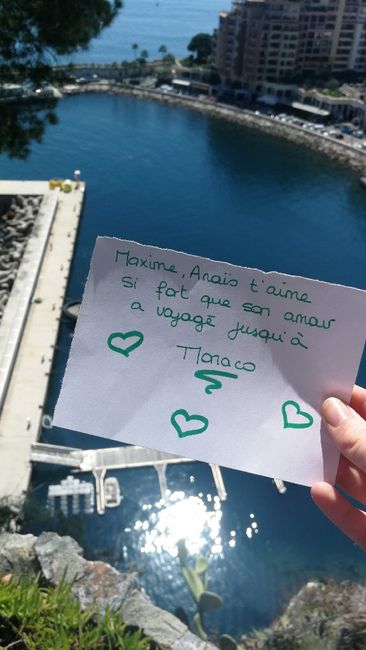 Maxime, Anaïs t'aime
si fort que son amour
a voyagé jusqu'à
Monaco